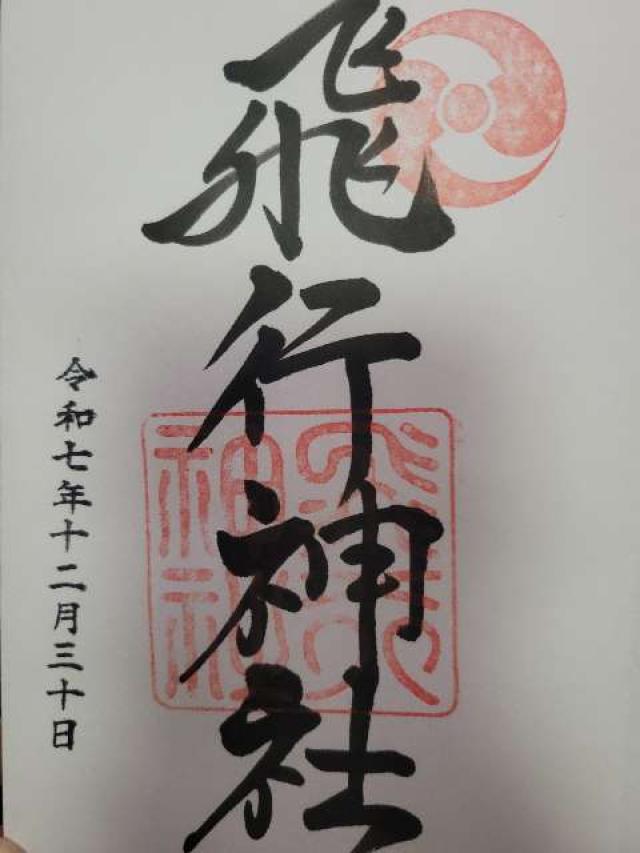 飛行神社
令和七年十二月三十日
飛行
神社